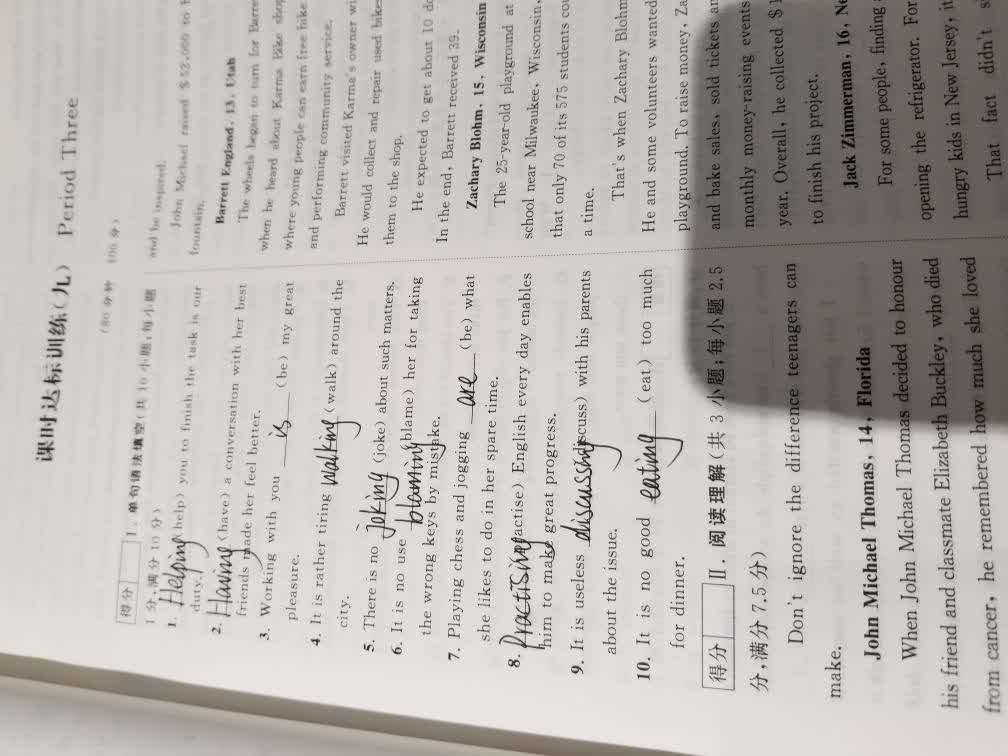 课时达标训练(九) Period Three
(80分钟 100分)
得分
Ⅰ. 单句语法填空(共10小题;每小题
1分,满分10分)
1. Helping (help) you to finish the task is our
duty.
2. Having (have) a conversation with her best
friends made her feel better.
3. Working with you is (be) my great
pleasure.
4. It is rather tiring walking (walk) around the
city.
5. There is no joking (joke) about such matters.
6. It is no use blaming (blame) her for taking
the wrong keys by mistake.
7. Playing chess and jogging are (be) what
she likes to do in her spare time.
8. Practising actise) English every day enables
him to make great progress.
9. It is useless discussing iscuss) with his parents
about the issue.
10. It is no good eating (eat) too much
for dinner.
得分
Ⅱ. 阅读理解(共3小题;每小题2.5
分,满分7.5分)
Don't ignore the difference teenagers can
make.
John Michael Thomas, 14, Florida
When John Michael Thomas decided to honour
his friend and classmate Elizabeth Buckley, who died
from cancer, he remembered how much she loved
and he inspired.
John Michael raised $52,000 to
fountain.
Barrett England, 13, Utah
The wheels began to turn for Barre
when he heard about Karma Bike shop
where young people can earn free bike
and performing community service.
Barrett visited Karma's owner wi
He would collect and repair used bikes
them to the shop.
He expected to get about 10 do
In the end, Barrett received 39.
Zachary Blohm, 15, Wisconsin
The 25-year-old playground at
school near Milwaukee, Wisconsin,
that only 70 of its 575 students cou
a time.
That's when Zachary Blohm
He and some volunteers wanted
playground. To raise money, Za
and bake sales, sold tickets an
monthly money-raising events
year. Overall, he collected $1
to finish his project.
Jack Zimmerman, 16, Ne
For some people, finding
opening the refrigerator. For
hungry kids in New Jersey, it
That fact didn't s